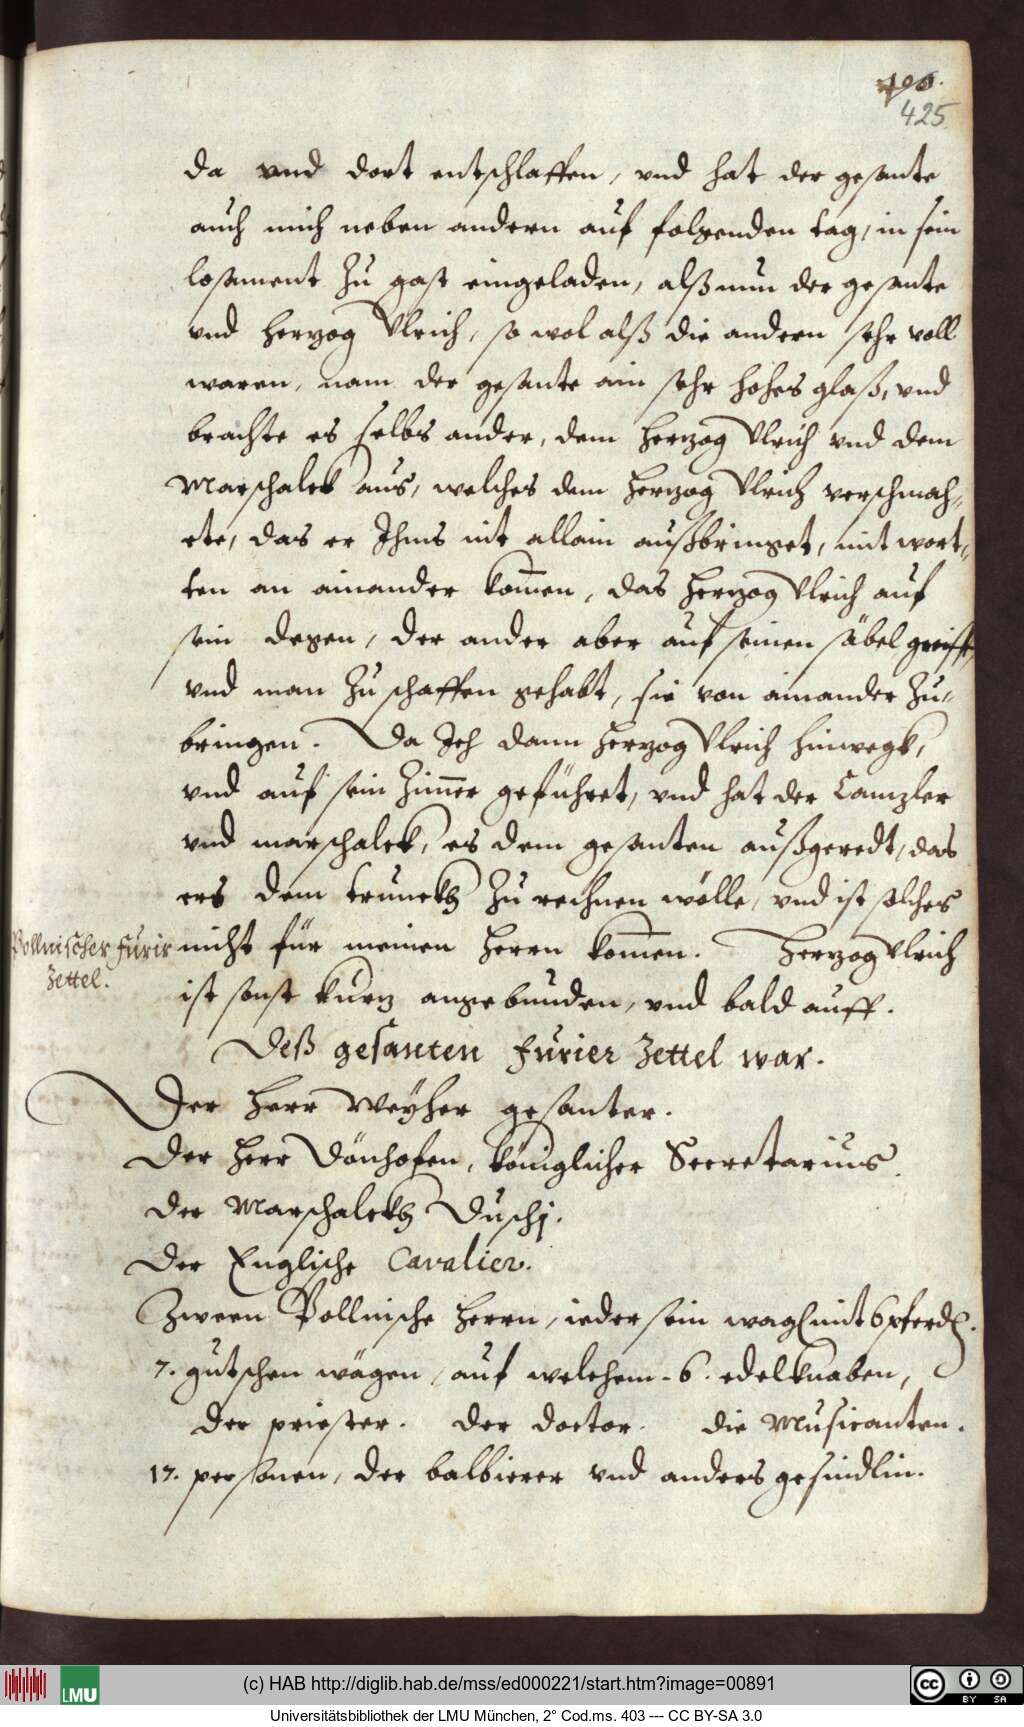 406.
425
da vnd dort entschlaffen, vnd hat der gesante
auch mich neben andern auf folgenden tag, in sein
losament Zu gast eingeladen, alß nun der gesante
vnd herzog Vlrich, so wol alß die andern sehr voll
waren, nam der gesante ain sehr hohes glaß, vnd
brachte es selbs ander, dem herzog Vlrich vnd dem
Marschalck aus, welches dem herzog Vlrich verschmah-
ete, das er Ihms nit allain außbringet, mit wort-
ten an ainander kom̄en, das herzog Vlrich auf
sein degen, der ander aber auf seinen säbel greifft,
vnd man Zu schaffen gehabt, sie von ainander Zu-
bringen. Da Ich dann herzog Vlrich hinwegk,
vnd auf sein Zim̄er geführet, vnd hat der Canzler
vnd marschalck, es dem gesanten außgeredt, das
ers dem trunckh Zu rechnen wölle, vnd ist solches
Pollnischer furir
Zettel.
nicht für meinen herrn kom̄en. Herzog Vlrich
ist sonst kurz angebunden, vnd bald auff.
Deß gesanten furier Zettel war.
Der Herr Weyher gesanter.
Der Herr Dönhofen, königlicher Secretarius.
Der Marschalckh Duschj.
Der Englische Cavalier.
Zween Pollnische herrn, ieder sein wag mit 6 pferd.
7. gutschen wägen, auf welchem. 6. edelknaben,
Der priester. Der doctor. die Musicanten.
17. personen, der balbierer vnd anders gesindlin.
LMU
(c) HAB http://diglib.hab.de/mss/ed000221/start.htm?image=00891
cc BY SA
Universitätsbibliothek der LMU München, 2° Cod.ms. 403 --- CC BY-SA 3.0